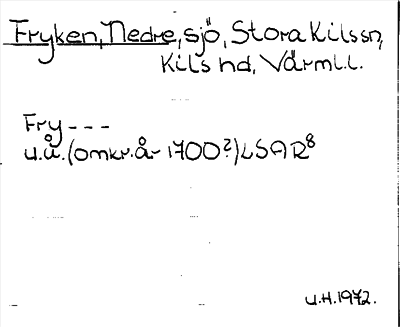 Fryken, Nedre, sjö, Stora Kils sn,
Kils hd, Värml.l.
Fry---
u.å. (omkr. år 1700?) LSAR⁸
U.H. 1972.